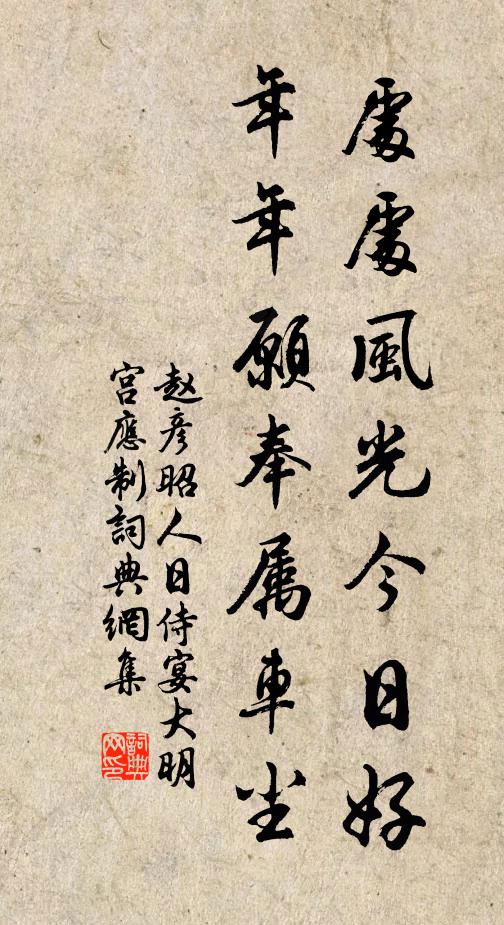 處處風光今日好
年年願奉属車尘
赵彦昭人日侍宴大明
宫應制詞典網集
詞典
网印